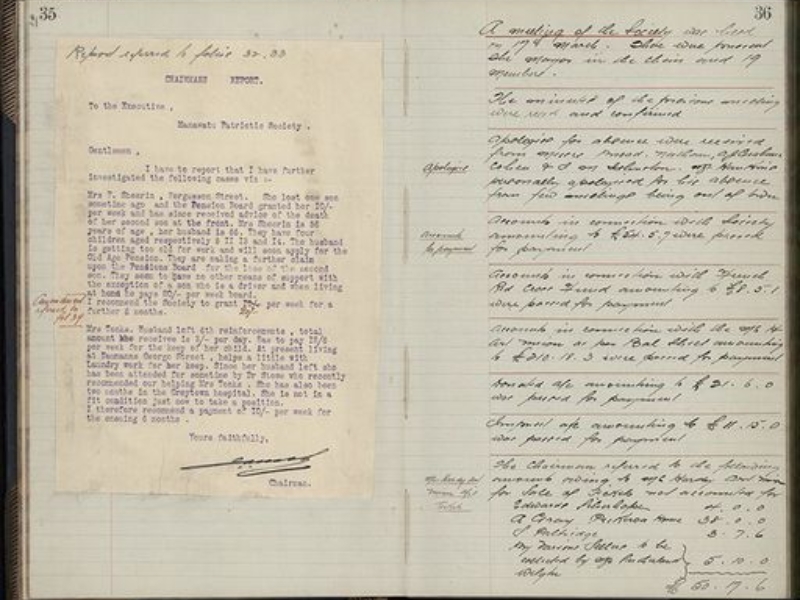 35
Report referred to folio 32.33
CHAIRMANS REPORT.
To the Executive,
Manawatu Patriotic Society.
Gentlemen,
I have to report that I have further
investigated the following cases viz :-
Mrs T. Shearin, Fergusson Street. She lost one son
sometime ago and the Pension Board granted her 10/-
per week and has since received advice of the death
of her second son at the front. Mrs Shearin is 56
years of age, her husband is 66. They have four
children aged respectively 9 II I2 and I4. The husband
is getting too old for work and will soon apply for the
Old Age Pension. They are making a further claim
upon the Pensions Board for the loss of the second
son. They seem to have no other means of support with
the exception of a son who is a driver and when living
at home he pays 20/- per week board.
I recommend the Society to grant per week for a
further 6 months.
Mrs Tonks. Husband left 4th reinforcements, total
amount she receives is 3/- per day. Has to pay
per week for the keep of her child. At present living
at George Street, helps a little with
laundry work for her keep. Since her husband left she
has been attended for sometime by Dr Stowe who recently
recommended our helping Mrs Tonks. She has also been
two months in the Greytown hospital. She is not in a
fit condition just now to take a position.
I therefore recommend a payment of IO/- per week for
the ensuing 6 months.
Yours faithfully,
Chairman.
36
A meeting of the Society was held
on 17th March. There were present
the Mayor in the chair and 19
members.
The minutes of the previous meeting
were read and confirmed
Apologies
Apologies for absence were received
from Messrs
personally apologised for his absence
from few meetings being out of town
Accounts
for payment
Accounts in connection with Society
amounting to £54.5.7 were passed
for payment
Accounts in connection with French
Rd Cross Fund amounting to £8.5.1
were passed for payment
Accounts in connection with the
Art Union a/c per Bal Sheet amounting
to £210.18.3 were passed for payment
a/c amounting to £21.6.0
was passed for payment
a/c amounting to £11.15.0
was passed for payment
The Chairman referred to the following
amounts owing to Art Union
for Sale of Tickets not accounted for
Edwards 4.0.0
A 38.0.0
S Partridge 3.7.6
By Various Sellers to be
collected by 5.10.0
£50.17.6